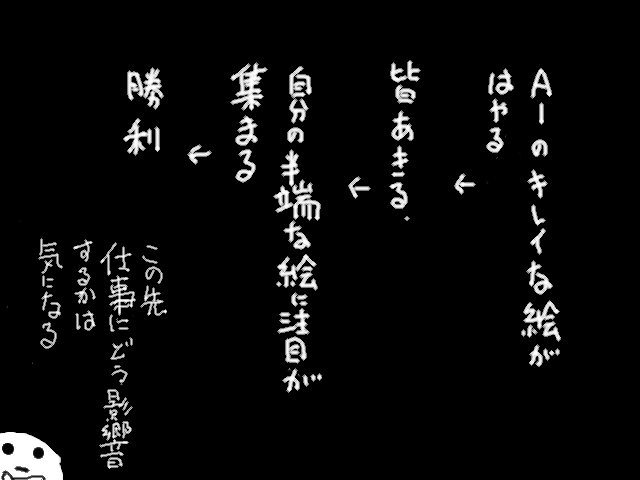 AIのキレイな絵が
はやる
←
皆あきる.
←
自分の半端な絵に注目が
集まる
←
勝利
この先
仕事にどう影響
するかは
気になる